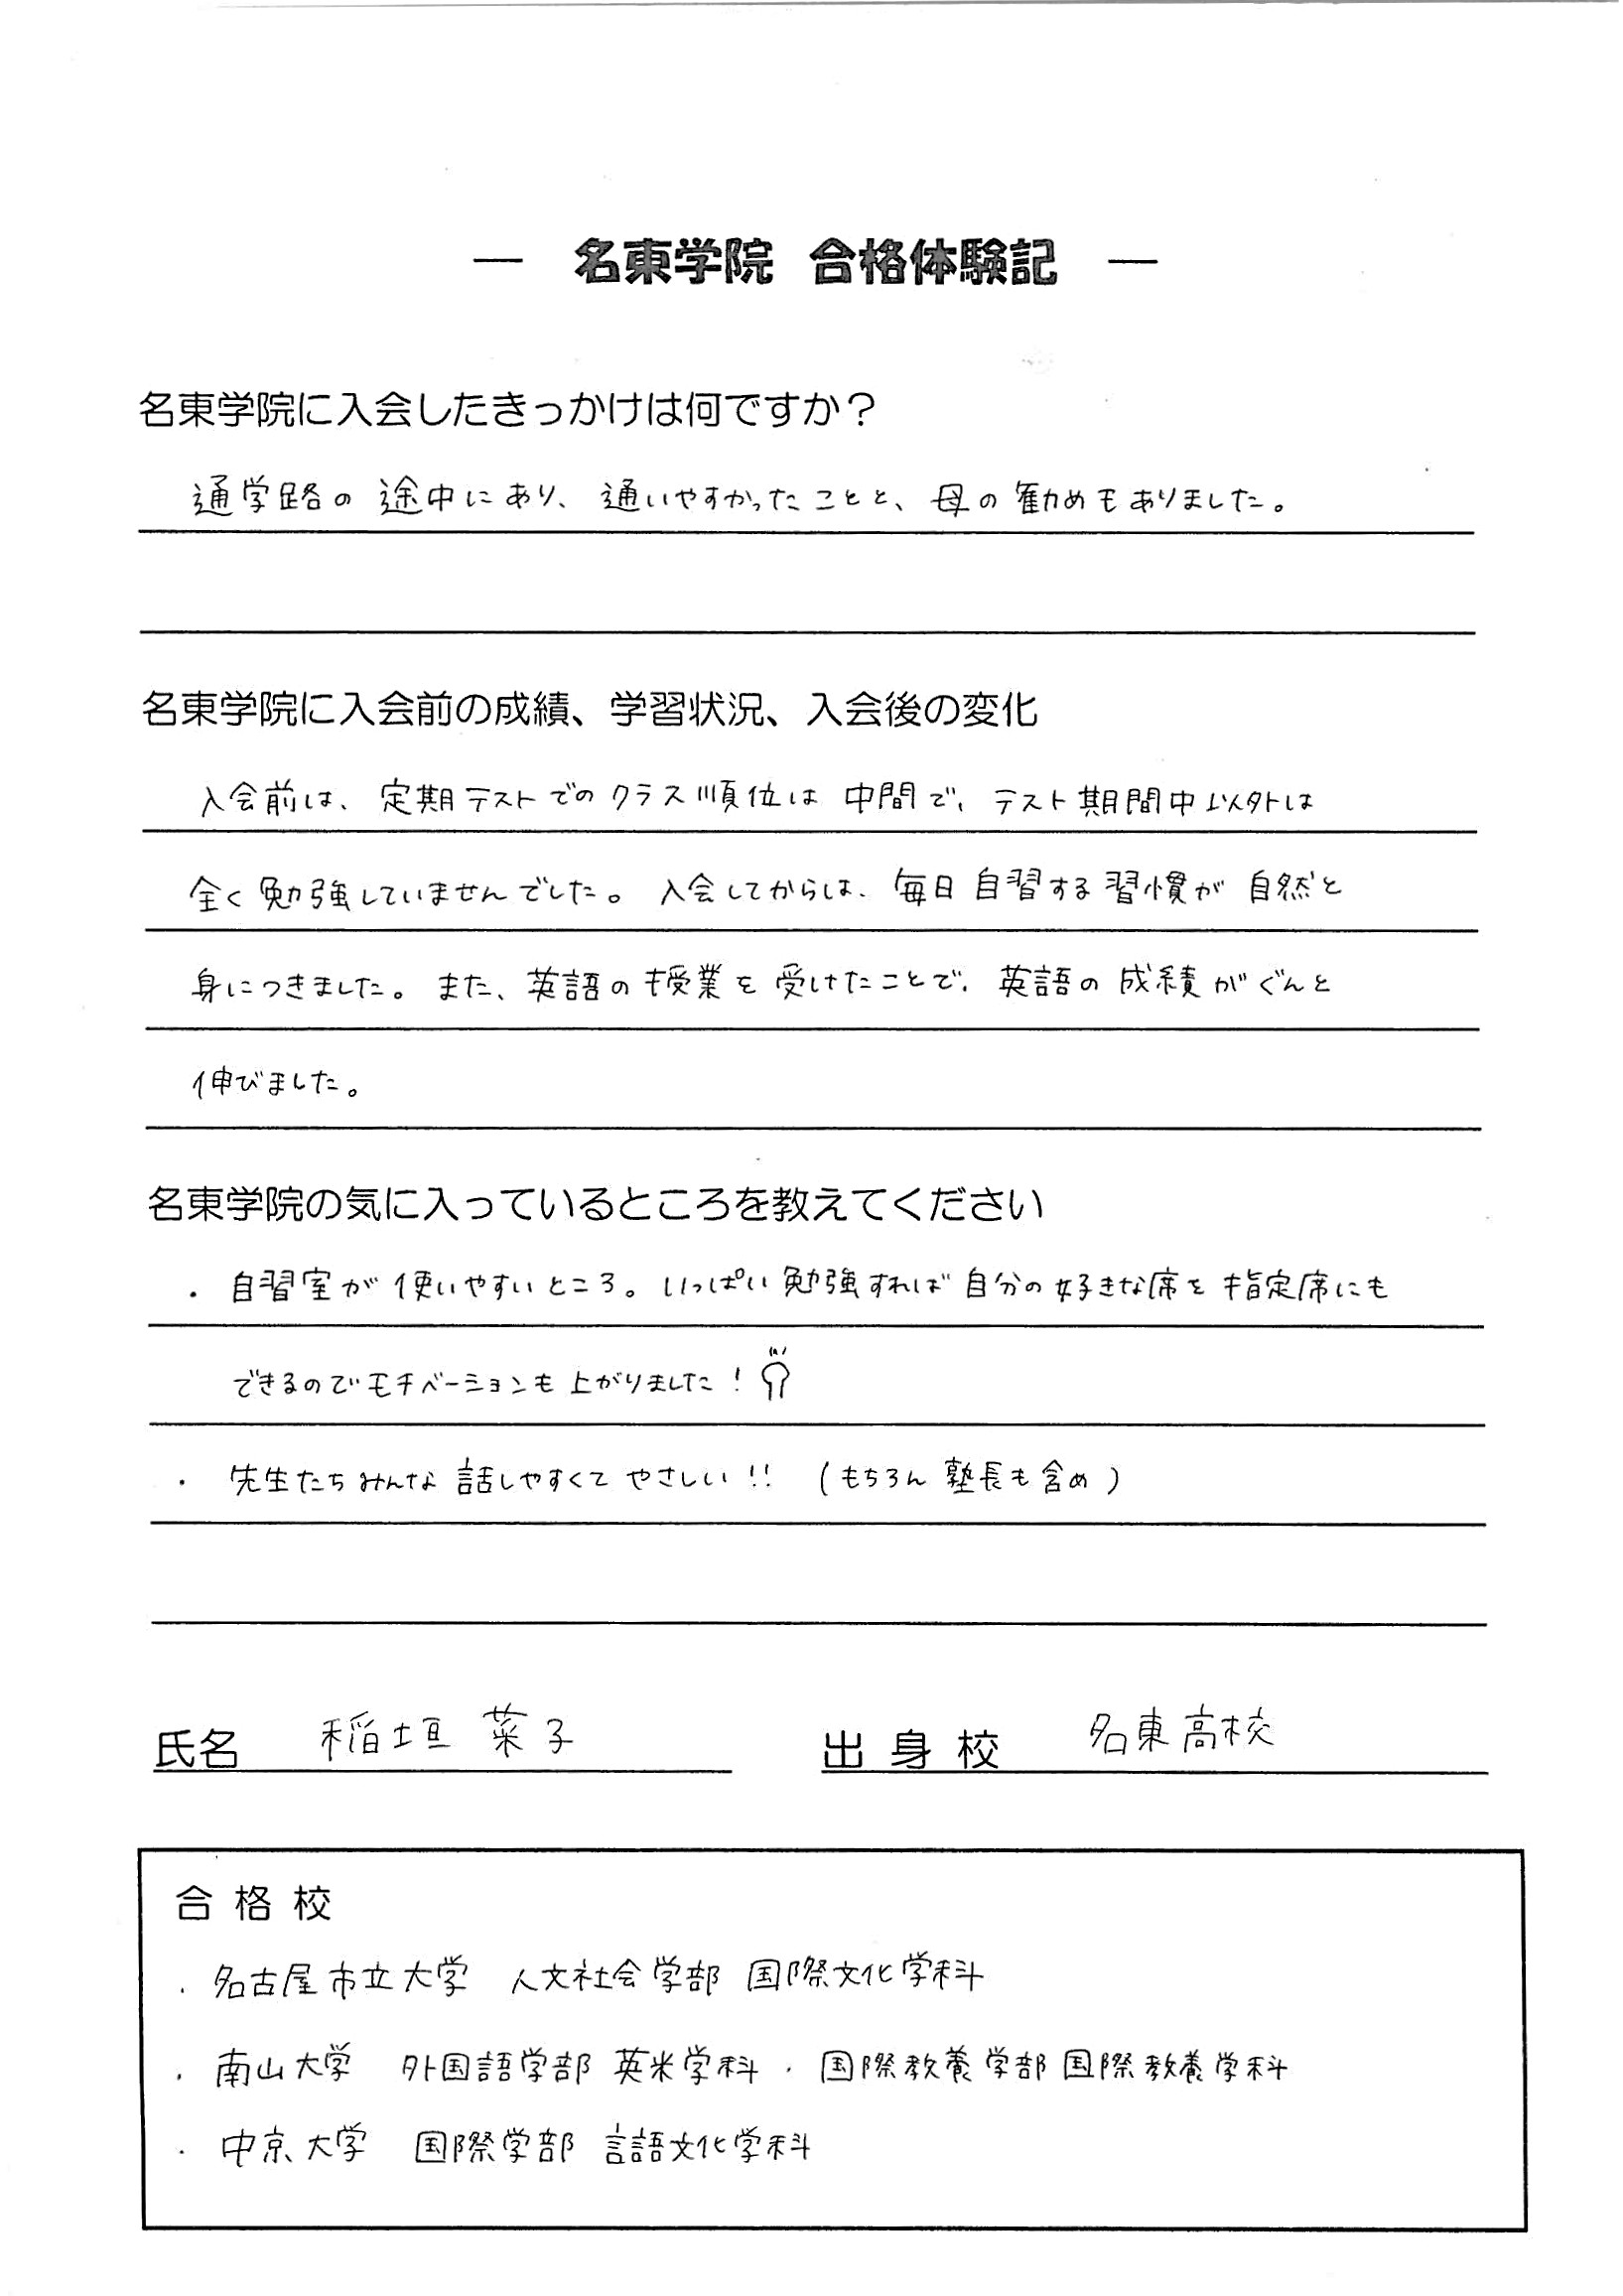 ― 名東学院 合格体験記 ―
名東学院に入会したきっかけは何ですか？
通学路の途中にあり、通いやすかったことと、母の勧めもありました。
名東学院に入会前の成績、学習状況、入会後の変化
入会前は、定期テストでのクラス順位は中間で、テスト期間中以外は
全く勉強していませんでした。入会してからは、毎日自習する習慣が自然と
身につきました。また、英語の授業を受けたことで、英語の成績がぐんと
伸びました。
名東学院の気に入っているところを教えてください
・自習室が使いやすいところ。いっぱい勉強すれば自分の好きな席を指定席にも
できるのでモチベーションも上がりました！
・先生たちみんな話しやすくてやさしい!!（もちろん塾長も含め）
氏名 稲垣菜子 出身校 名東高校
合格校
・名古屋市立大学 人文社会学部 国際文化学科
・南山大学 外国語学部 英米学科・国際教養学部 国際教養学科
・中京大学 国際学部 言語文化学科